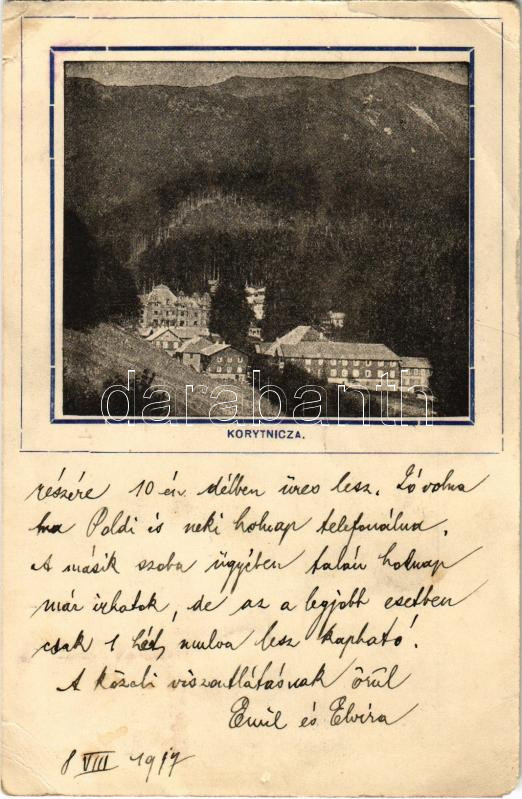 darabanth
KORYTNICZA.
részére 10 én délben üres lesz. Jó volna
ha Poldi is neki holnap telefonálna.
A másik szoba ügyében talán holnap
már irhatok, de az a legjobb esetben
csak 1 hét mulva lesz kapható.
A közeli viszontlátásnak örül
Emil és Elvira
8 VIII 1917